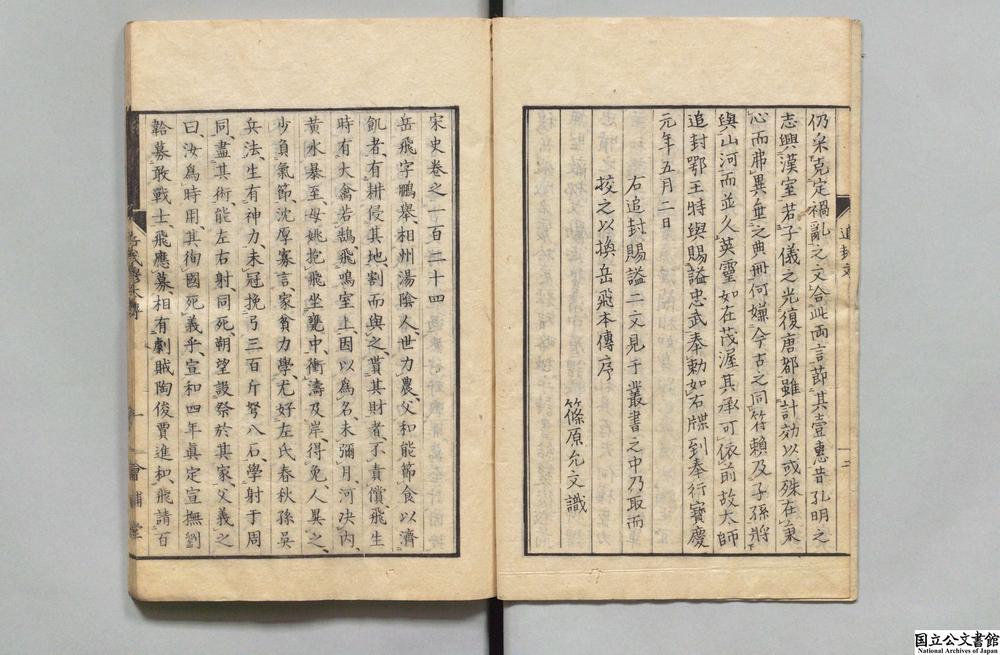 仍采克定禍亂之文合此兩言節其壹惠昔孔明之
志興漢室若子儀之光復唐都雖計効以或殊在秉
心而弗異垂之典冊何嫌今古之同符賴及子孫將
與山河而並久英靈如在茂渥其承可依前故太師
追封鄂王特與賜謚忠武奉勅如右牒到奉行寶慶
元年五月二日
右追封賜謚二文見于叢書之中乃取而
挍之以換岳飛本傳序
篠原允文識
宋史卷之一百二十四
岳飛字鵬舉相州湯陰人世力農父和能節食以濟
飢者有耕侵其地割而與之貰其財者不責償飛生
時有大禽若鵠飛鳴室上因以為名未彌月河决內
黃水暴至母姚抱飛坐甕中衝濤及岸得免人異之
少負氣節沈厚寡言家貧力學尤好左氏春秋孫吳
兵法生有神力未冠挽弓三百斤弩八石學射于周
同盡其術能左右射同死朔望設祭於其家父義之
曰汝為時用其徇國死義乎宣和四年真定宣撫劉
韐募敢戰士飛應募相有劇賊陶俊賈進和飛請百
追封文
國立公文書館
National Archives of Japan